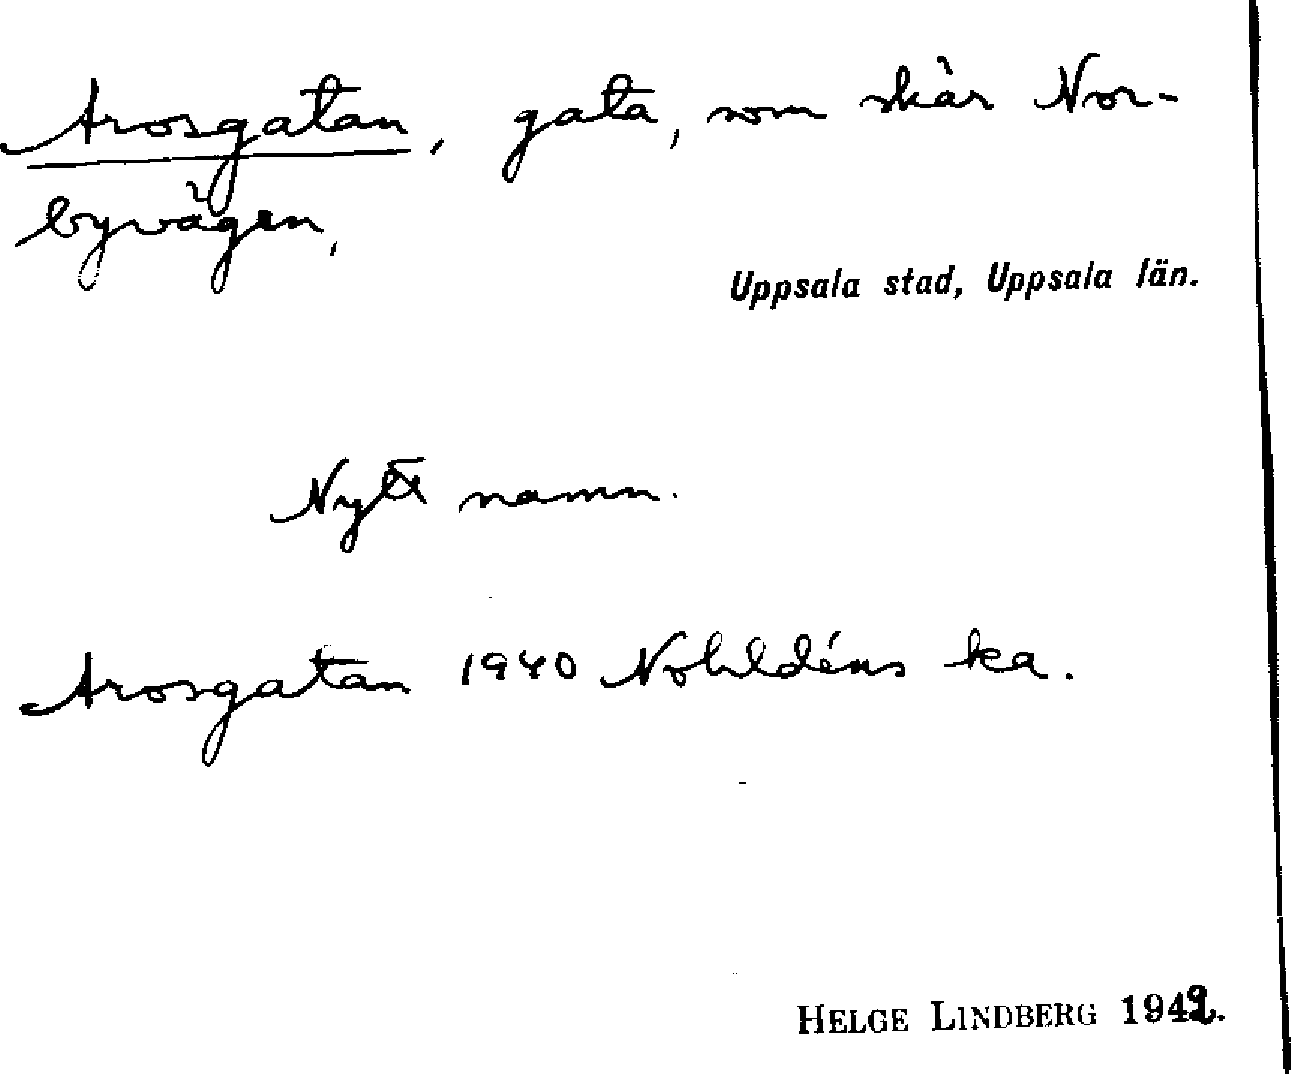 Arosgatan, gata, som skär Nor-
byvägen,
Uppsala stad, Uppsala län.
Nytt namn.
Arosgatan 1940 Nohldéns ka.
HELGE LINDBERG 1942.